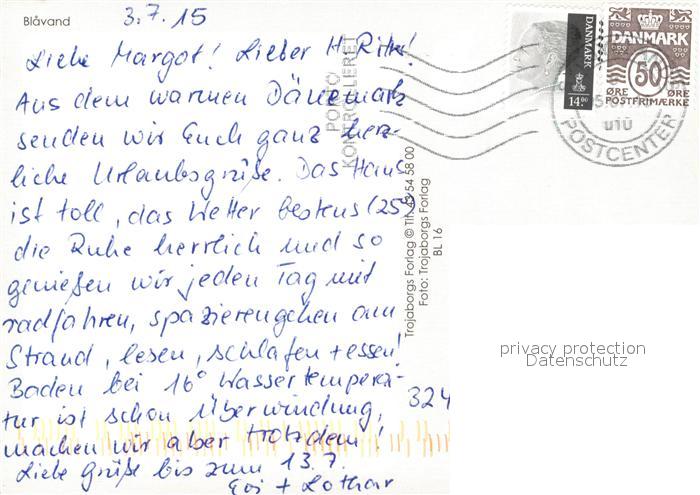 Blåvand
3.7.15
Liebe Margot! Lieber H.
Aus dem warmen Dänemark
senden wir Euch ganz herz-
liche Urlaubsgrüße. Das Haus
ist toll, das Wetter bestens (25°)
die Ruhe herrlich und so
genießen wir jeden Tag mit
radfahren, spazierengehen am
Strand, lesen, schlafen + essen!
Baden bei 16° Wassertempera-
tur ist schon Überwindung,
machen wir aber trotzdem!
Liebe Grüße bis zum 13.7.
Evi + Lothar
324
PORTO
KONTROLLERET
Trojaborgs Forlag © Tlf. 43 54 58 00
Foto: Trojaborgs Forlag
BL 16
DANMARK
14.00
DANMARK
50
ØRE ØRE
POSTFRIMÆRKE
POSTCENTER
privacy protection
Datenschutz